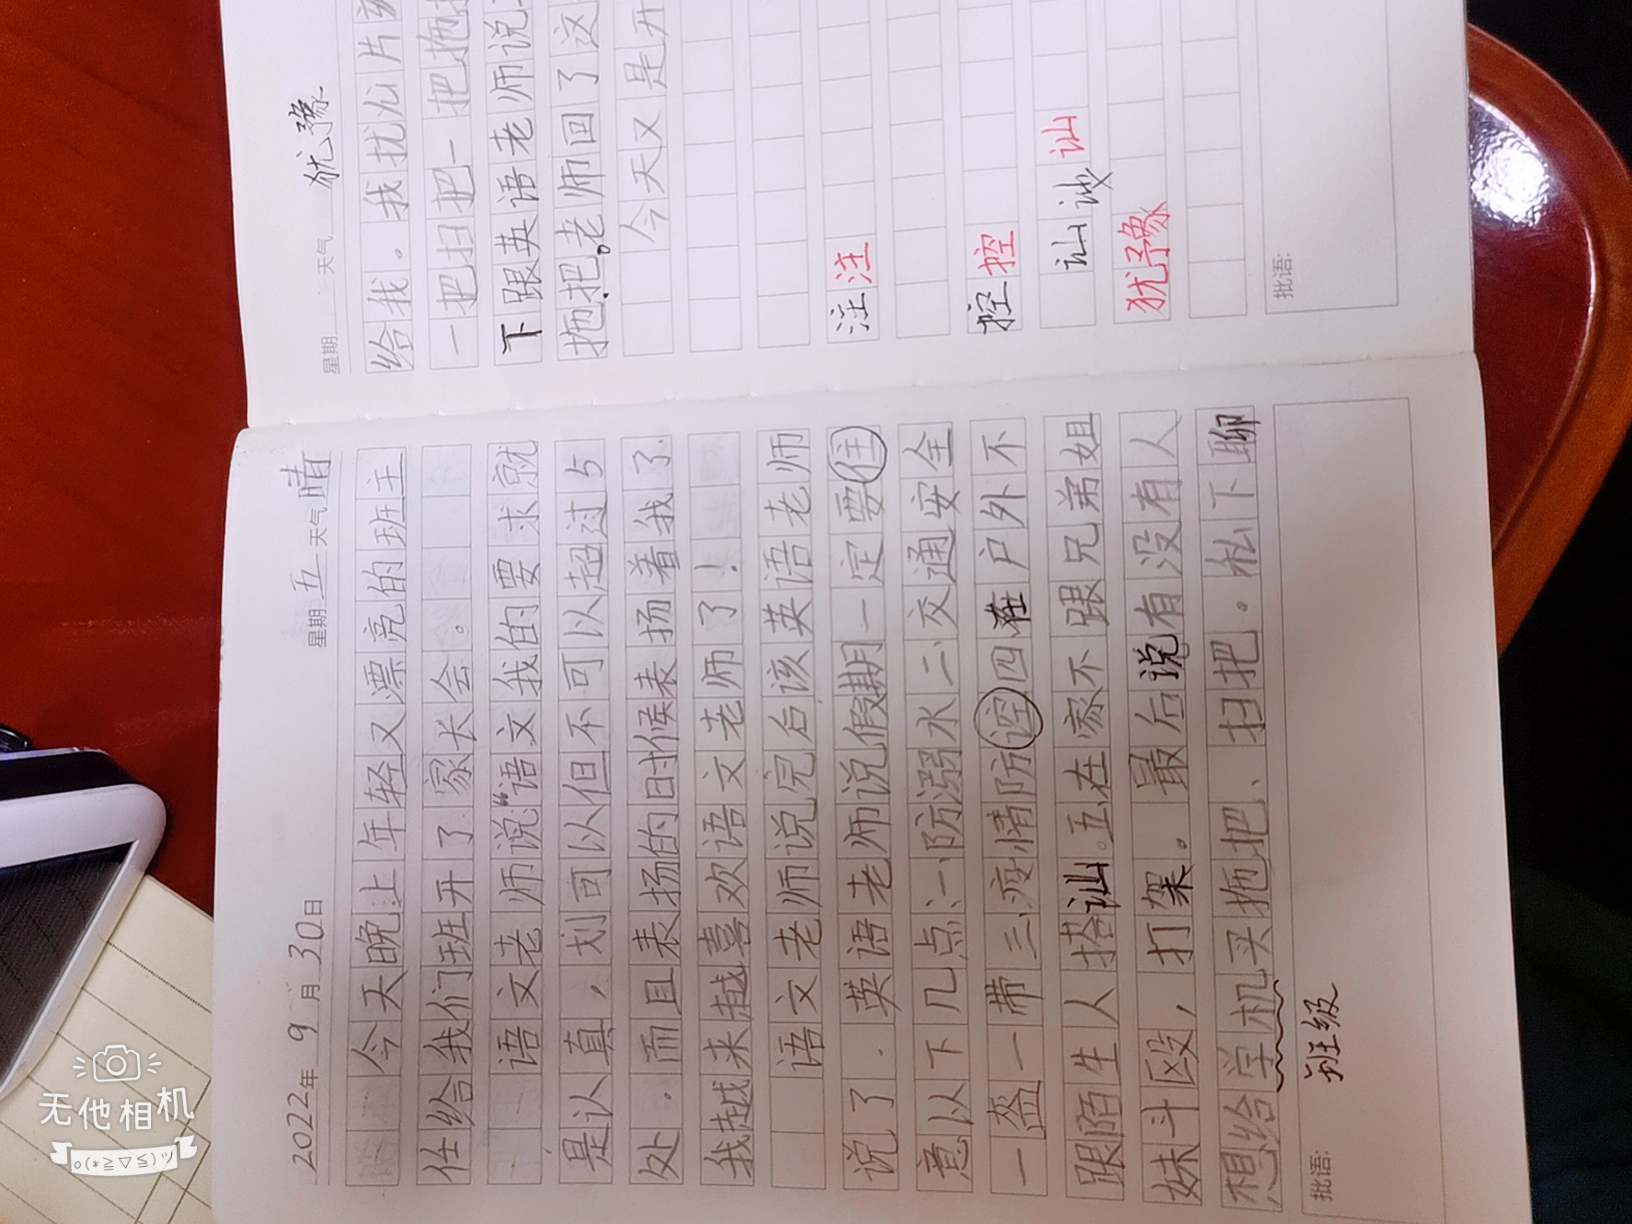 2022年 9 月 30 日 星期 五 天气 晴
今天晚上年轻又漂亮的班主
任给我们班开了家长会。
语文老师说“语文我的要求就
是认真，划可以但不可以超过5
处．而且表扬的时候表扬着我了．
我越来越喜欢语文老师了！
语文老师说完后该英语老师
说了．英语老师说假期一定要住
意以下几点：一防溺水二交通安全
一盔一带三疫情防谾四在户外不
跟陌生人搭讪。五在家不跟兄弟姐
妹斗殴，打架。最后说有没有人
想给学机买拖把、扫把。私下聊
批语:
班级
星期 天气 犹豫
给我。我扰心片
一把扫把一把拖
下跟英语老师说
拖把。老师回了这
今天又是开
注 注
控 控
讪 讪 讪
犹豫
批语:
无他相机
o(*≧▽≦)ツ